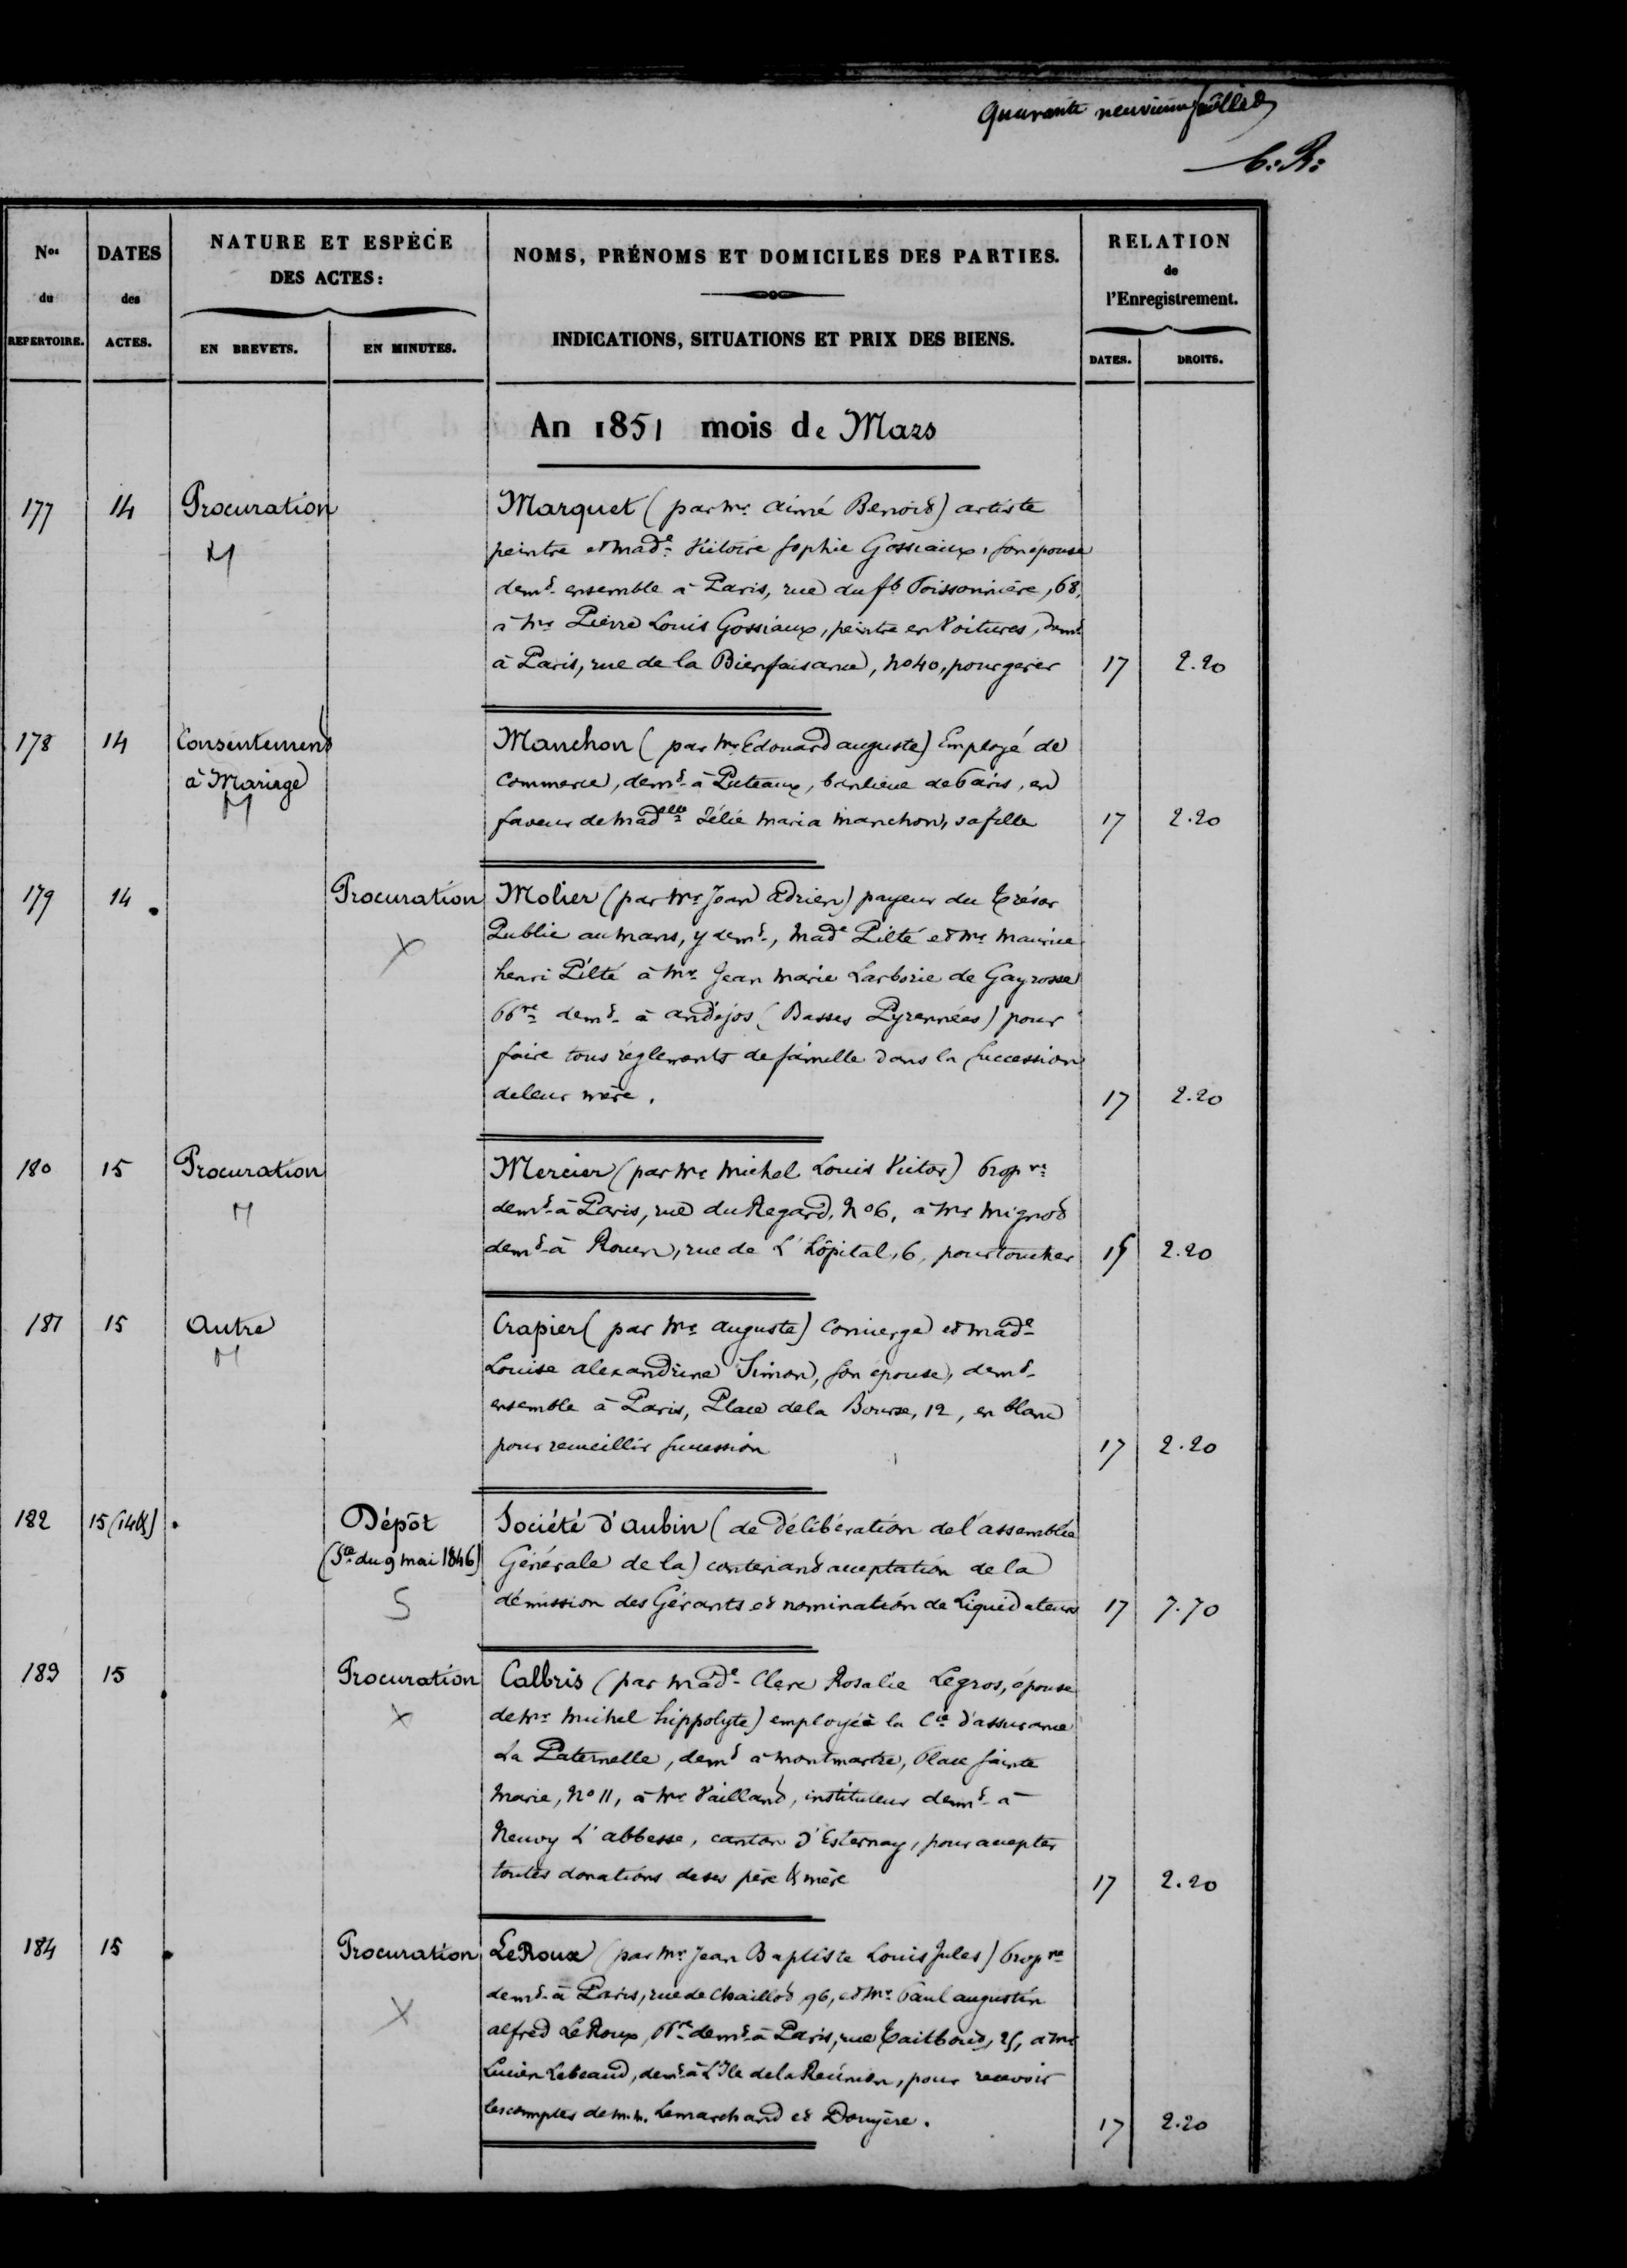 Quarante neuvième feuillet
C. R.
Nos du REPERTOIRE.
DATES des ACTES.
NATURE ET ESPÈCE DES ACTES:
EN BREVETS.
EN MINUTES.
NOMS, PRÉNOMS ET DOMICILES DES PARTIES.
INDICATIONS, SITUATIONS ET PRIX DES BIENS.
RELATION de l'Enregistrement.
DATES.
DROITS.
An 1851 mois de Mars
177 14 Procuration Marquet (par Mr. Aimé Benoit) artiste
M peintre et Made. Victoire Sophie Gossiaux, son épouse
demt. ensemble à Paris, rue du fb Poissonnière, 68,
à Mr Pierre Louis Gossiaux, peintre en Voitures, demt
à Paris, rue de la Bienfaisance, No 40, pour gérer 17 2.20
178 14 Consentement Manchon (par Mr Edouard auguste) Employé de
à Mariage commerce, demt. à Puteaux, banlieue de Paris, en
M faveur de Madelle Zélie Maria Manchon, sa fille 17 2.20
179 14 Procuration Molier (par Mr Jean Adrien) payeur du Trésor
X Public au Mans, y demt., Made Pilté et Mr Maurice
henri Pilté à Mr. Jean Marie Larborie de Gayrosse
ppre demt. à andéjos (Basses Pyrennées) pour
faire tous réglements de famille dans la succession
de leur mère. 17 2.20
180 15 Procuration Mercier (par Mr Michel Louis Victor) Propre
M demt. à Paris, rue du Regard, No 6, à Mr Mignot
demt. à Rouen, rue de L'hôpital, 6, pour toucher 15 2.20
181 15 Autre Crapier (par Mr Auguste) Concierge et Made.
M Louise alexandrine Simon, son épouse, demt.
ensemble à Paris, Place de la Bourse, 12, en blanc
pour recueillir succession 17 2.20
182 15 (14 &) Dépôt Société d'aubin (de Délibération de l'assemblée
(Sté. du 9 mai 1846) Générale de la) contenant acceptation de la
S démission des Gérants et nomination de Liquidateurs 17 7.70
183 15 Procuration Calbris (par Made. Clere Rosalie Legros, épouse
X de Mr Michel hippolyte) employé à la Cie d'assurance
La Paternelle, demt à Montmartre, Place Sainte
Marie, No 11, à Mr Vaillant, instituteur demt. à
Neuvy L'abbesse, canton d'Esternay, pour accepter
toutes donations de ses père & mère 17 2.20
184 15 Procuration LeRoux (par Mr Jean Baptiste Louis Jules) Propre
X demt. à Paris, rue de Chaillot 96, et Mr. Paul augustin
alfred LeRoux, ppre demt. à Paris, rue Taitbout, 25, à Mr
Lucien Lebeaud, demt à L'Ile de la Réunion, pour recevoir
les comptes de M.M. Lemarchand et Douyère. 17 2.20